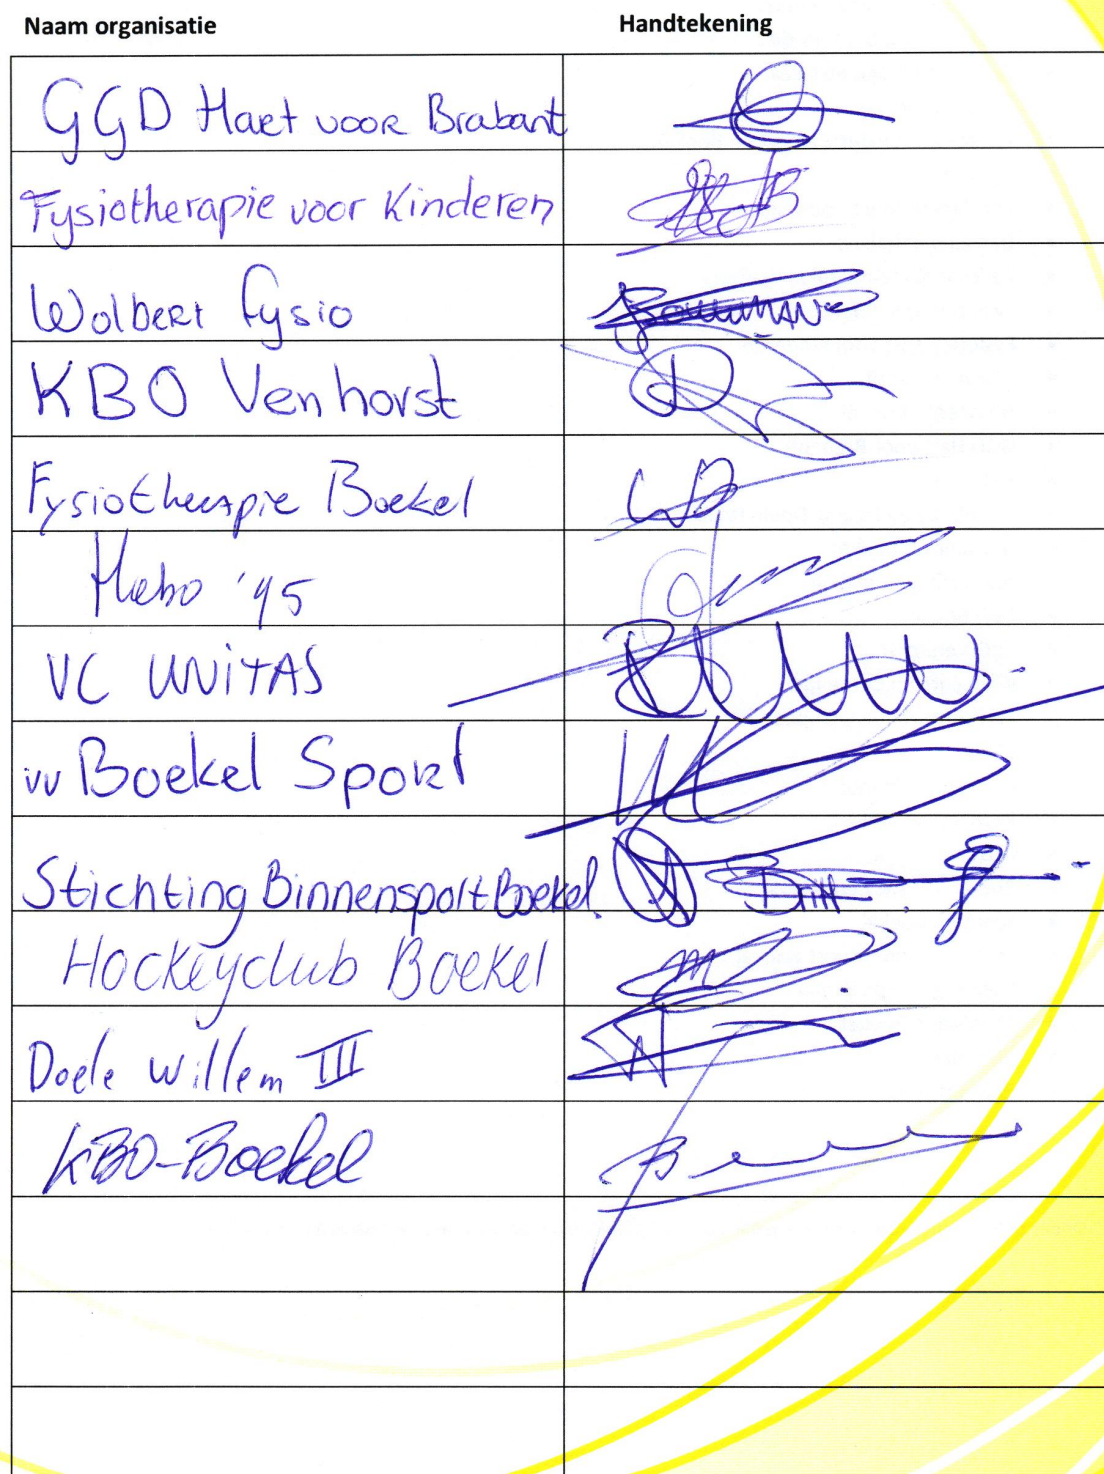 Naam organisatie Handtekening
GGD Hart voor Brabant
Fysiotherapie voor Kinderen
Wolbert fysio
KBO Venhorst
Fysiotherapie Boekel
Habo '95
VC UNITAS
vv Boekel Sport
Stichting Binnensport Boekel.
Hockeyclub Boekel
Doele Willem III
KBO-Boekel